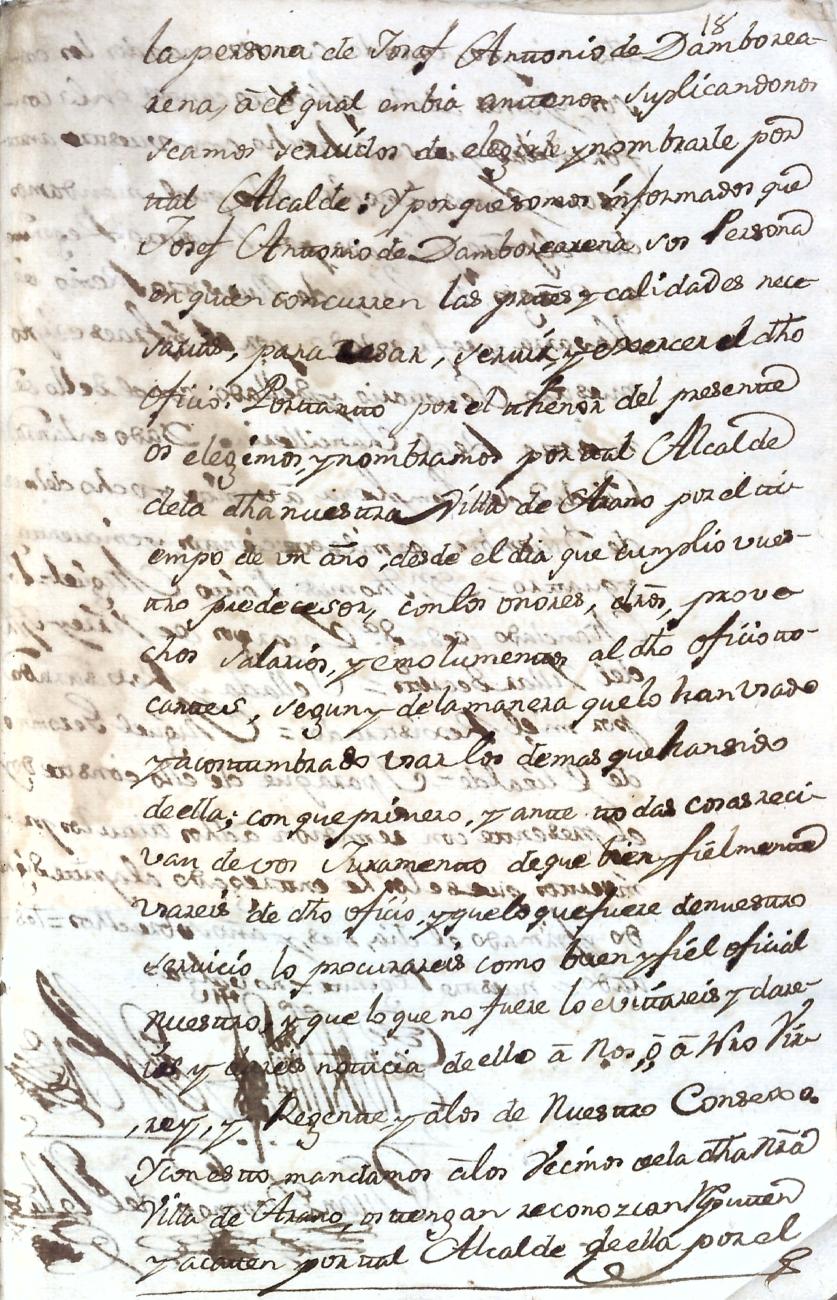 18
la persona de Josef Antonio de Damborea-
rena, â el qual embia anttenos suplicandonos
seamos servidos de elegirle y nombrarle por
ttal Alcalde: Y por que somos informados que
Josef Antonio de Damborearena sos Persona
en quien concurren las prtes y calidades nece
sarias, para usar, servir, y exercer el dho
oficio: Porttantto por el thenor del presentte
os elegimos, y nombramos por ttal Alcalde
dela dha nuesttra Villa de Arano por el tti-
empo de un año, desde el dia que cumplio vues-
ttro predecesor, con los onores, drōs, prove
chos salarios, y emolumenttos al dho oficio tto-
canttes, segun y de la manera que lo han usado
y acosttumbrado usar los demas que han sido
de ella; con que primero, y antte ttodas cosas reci
van de vos Juramentto de que bien y fielmentte
usareis de dho oficio, y que lo que fuere de nuesttro
servicio lo procurareis como buen y fiel oficial
nuesttro, y que lo que no fuere lo evittareis y dare-
is y dareis notticia de ello â Nos, ô â Nro Vir-
rey, y Regentte y alos de Nuesttro Consexo.
Y con estto mandamos âlos Vecinos dela dha Nrâ
Villa de Arano, os ttengan reconozcan Rputten
y acatten por ttal Alcalde de ella por el